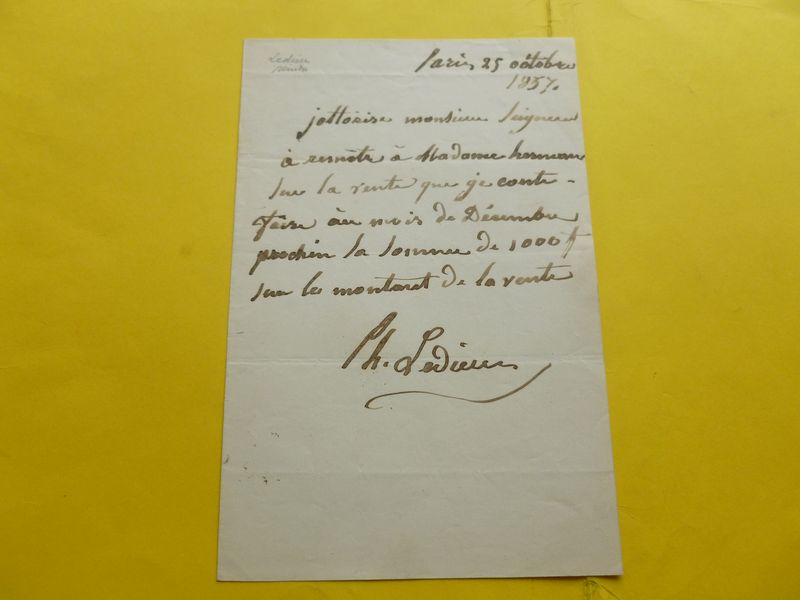 Ledieu
Paris 25 octobre
1857.
jottorise monsieur Seigneur
à remètre à Madame herman
sur la vente que je conte -
faire au mois de Désembre
prochin la somme de 1000 f
sur le montant de la vente
Ph. Ledieu